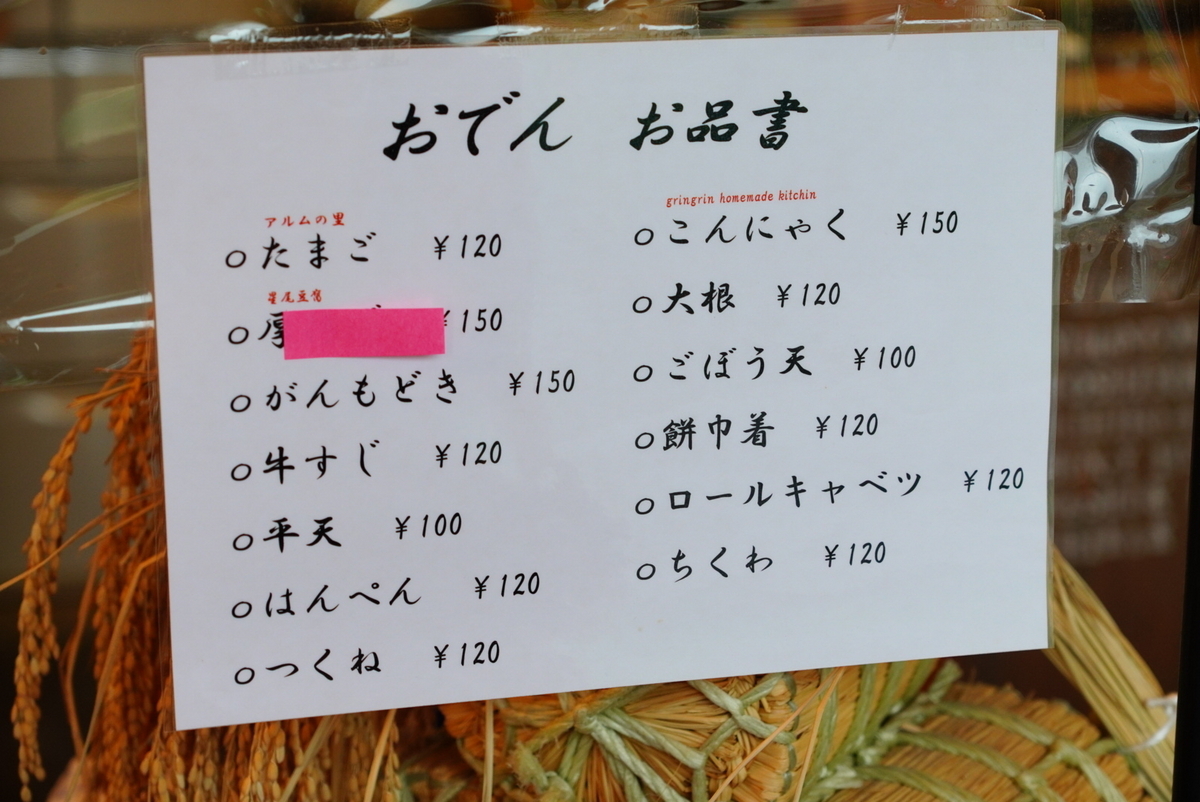 おでん お品書
アルムの里
○たまご ¥120
星尾豆腐
○厚 ¥150
○がんもどき ¥150
○牛すじ ¥120
○平天 ¥100
○はんぺん ¥120
○つくね ¥120
gringrin homemade kitchin
○こんにゃく ¥150
○大根 ¥120
○ごぼう天 ¥100
○餅巾着 ¥120
○ロールキャベツ ¥120
○ちくわ ¥120